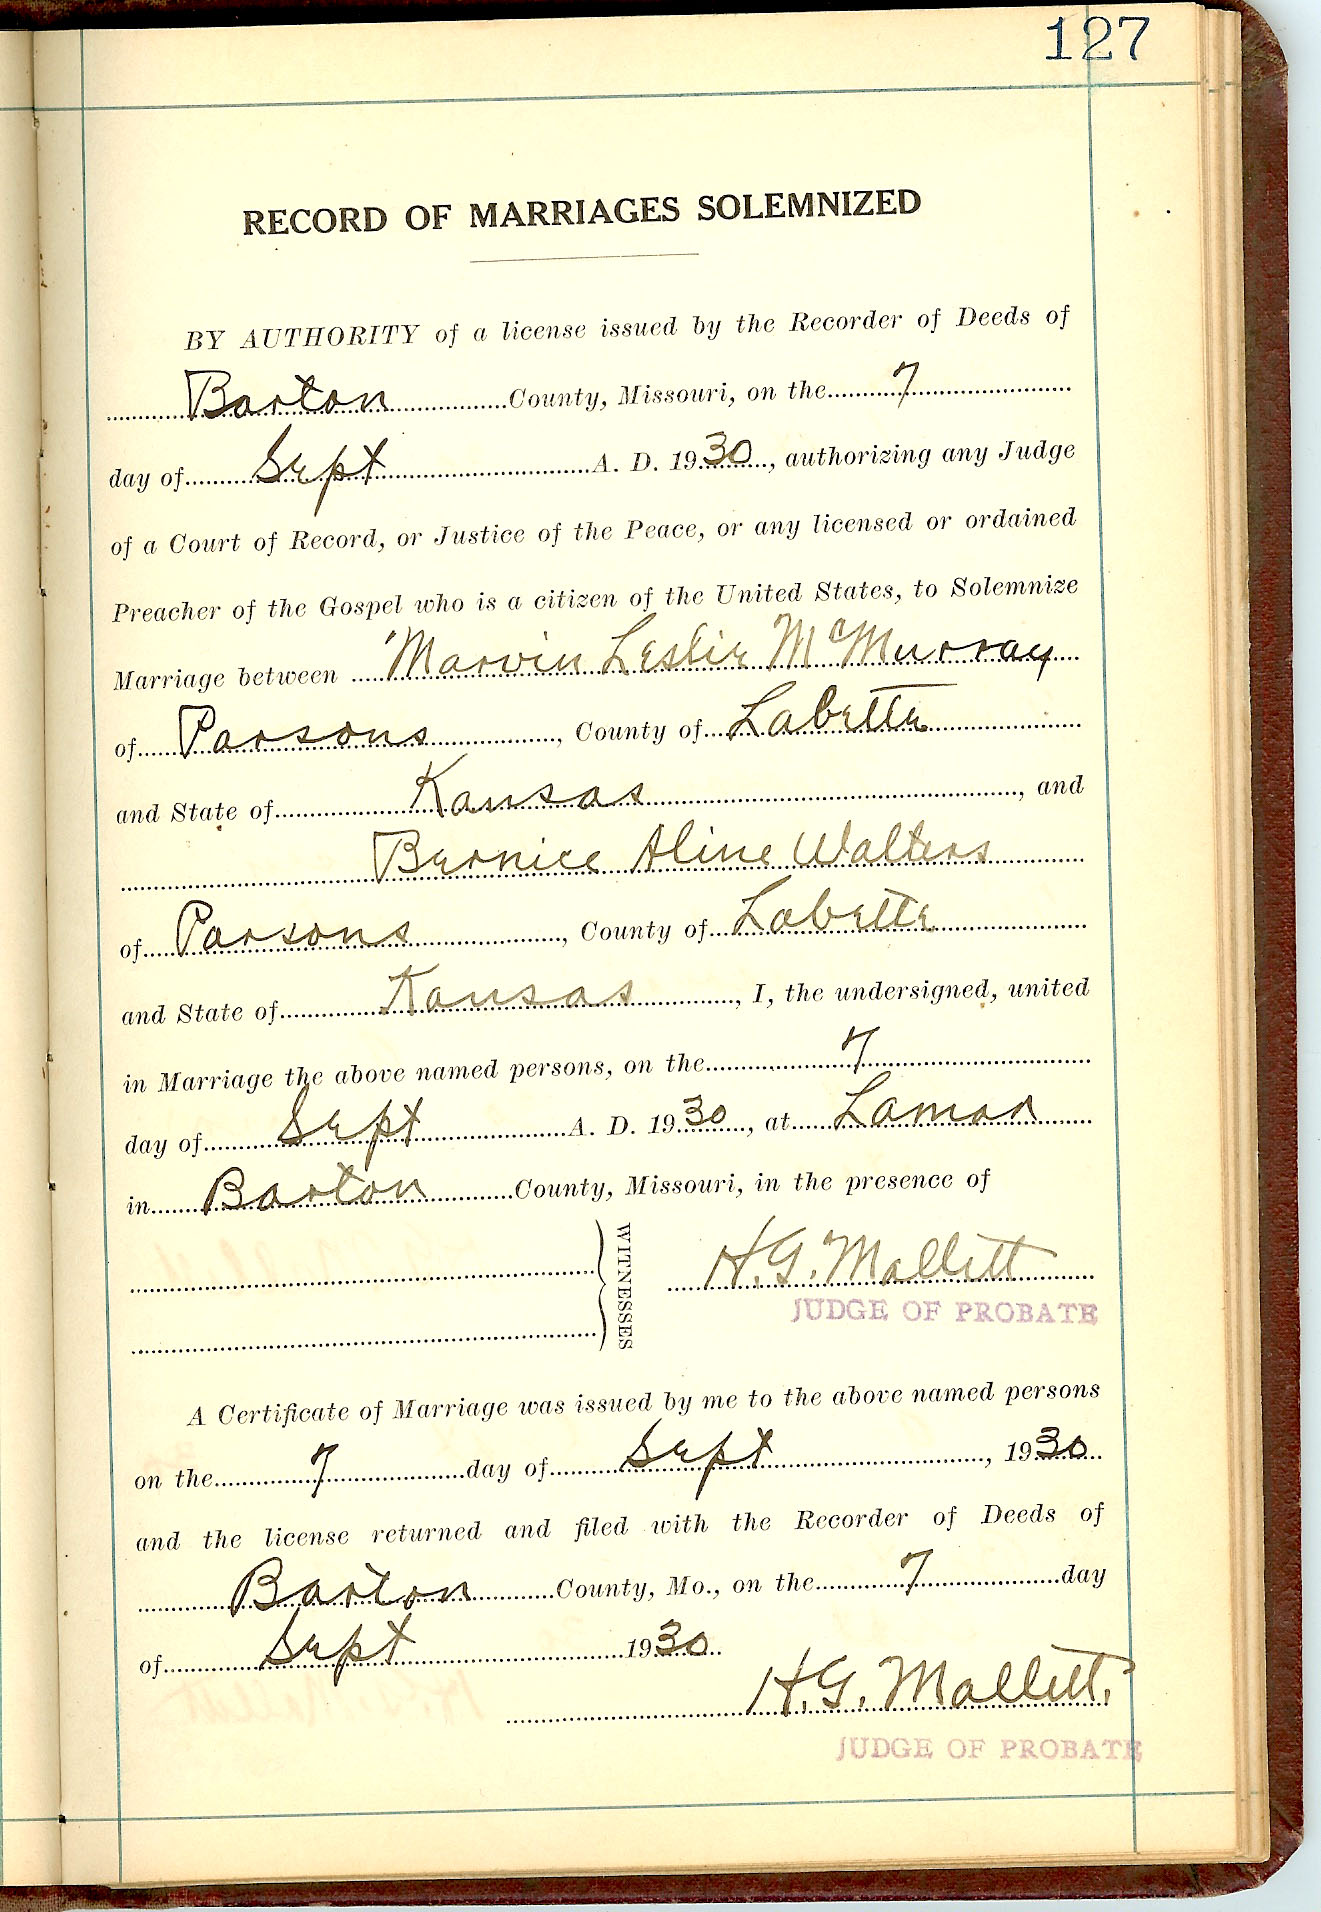 127
RECORD OF MARRIAGES SOLEMNIZED
BY AUTHORITY of a license issued by the Recorder of Deeds of
Barton County, Missouri, on the 7
day of Sept A. D. 1930, authorizing any Judge
of a Court of Record, or Justice of the Peace, or any licensed or ordained
Preacher of the Gospel who is a citizen of the United States, to Solemnize
Marriage between Marvin Leslie McMurray
of Parsons, County of Labette
and State of Kansas, and
Bernice Aline Walters
of Parsons, County of Labette
and State of Kansas, I, the undersigned, united
in Marriage the above named persons, on the 7
day of Sept A. D. 1930, at Lamar
in Barton County, Missouri, in the presence of
WITNESSES
H.G. Mallett
JUDGE OF PROBATE
A Certificate of Marriage was issued by me to the above named persons
on the 7 day of Sept, 1930
and the license returned and filed with the Recorder of Deeds of
Barton County, Mo., on the 7 day
of Sept 1930
H.G. Mallett.
JUDGE OF PROBATE